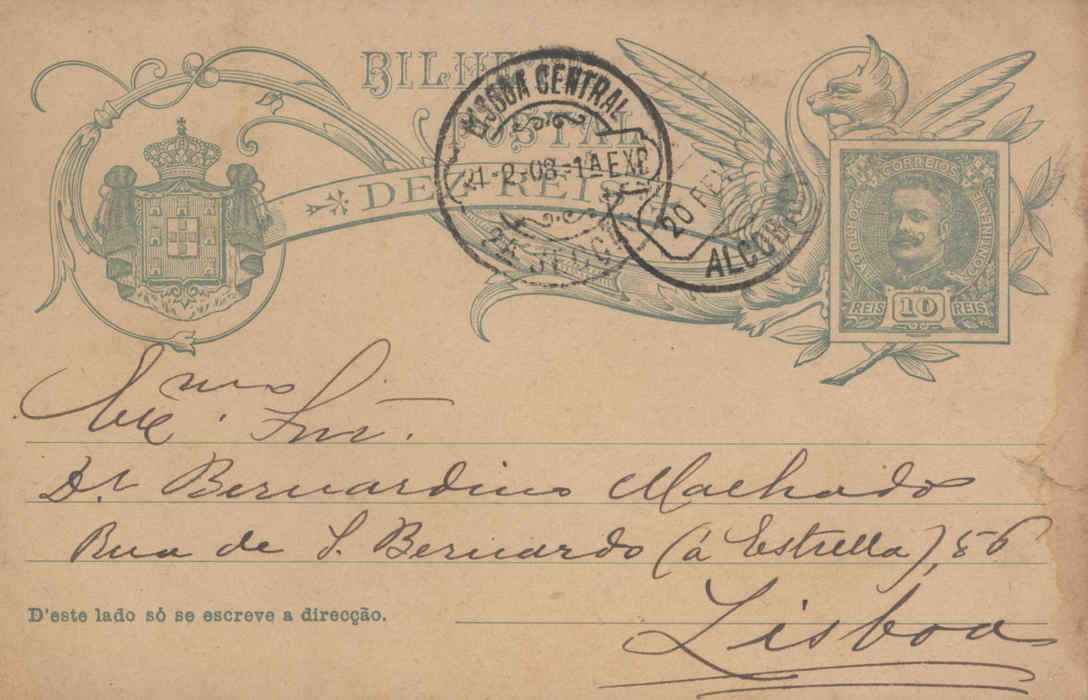 BILHETE
POSTAL
DEZ REIS
LISBOA CENTRAL
21-2-08-1A EXP
2A SECC
20 FEV
ALCOBA
CORREIOS
PORTUGAL
CONTINENTE
REIS 10 REIS
Exmo Snr.
Dr Bernardino Machado
Rua de S. Bernardo (á Estrella), 56
D'este lado só se escreve a direcção.
Lisboa